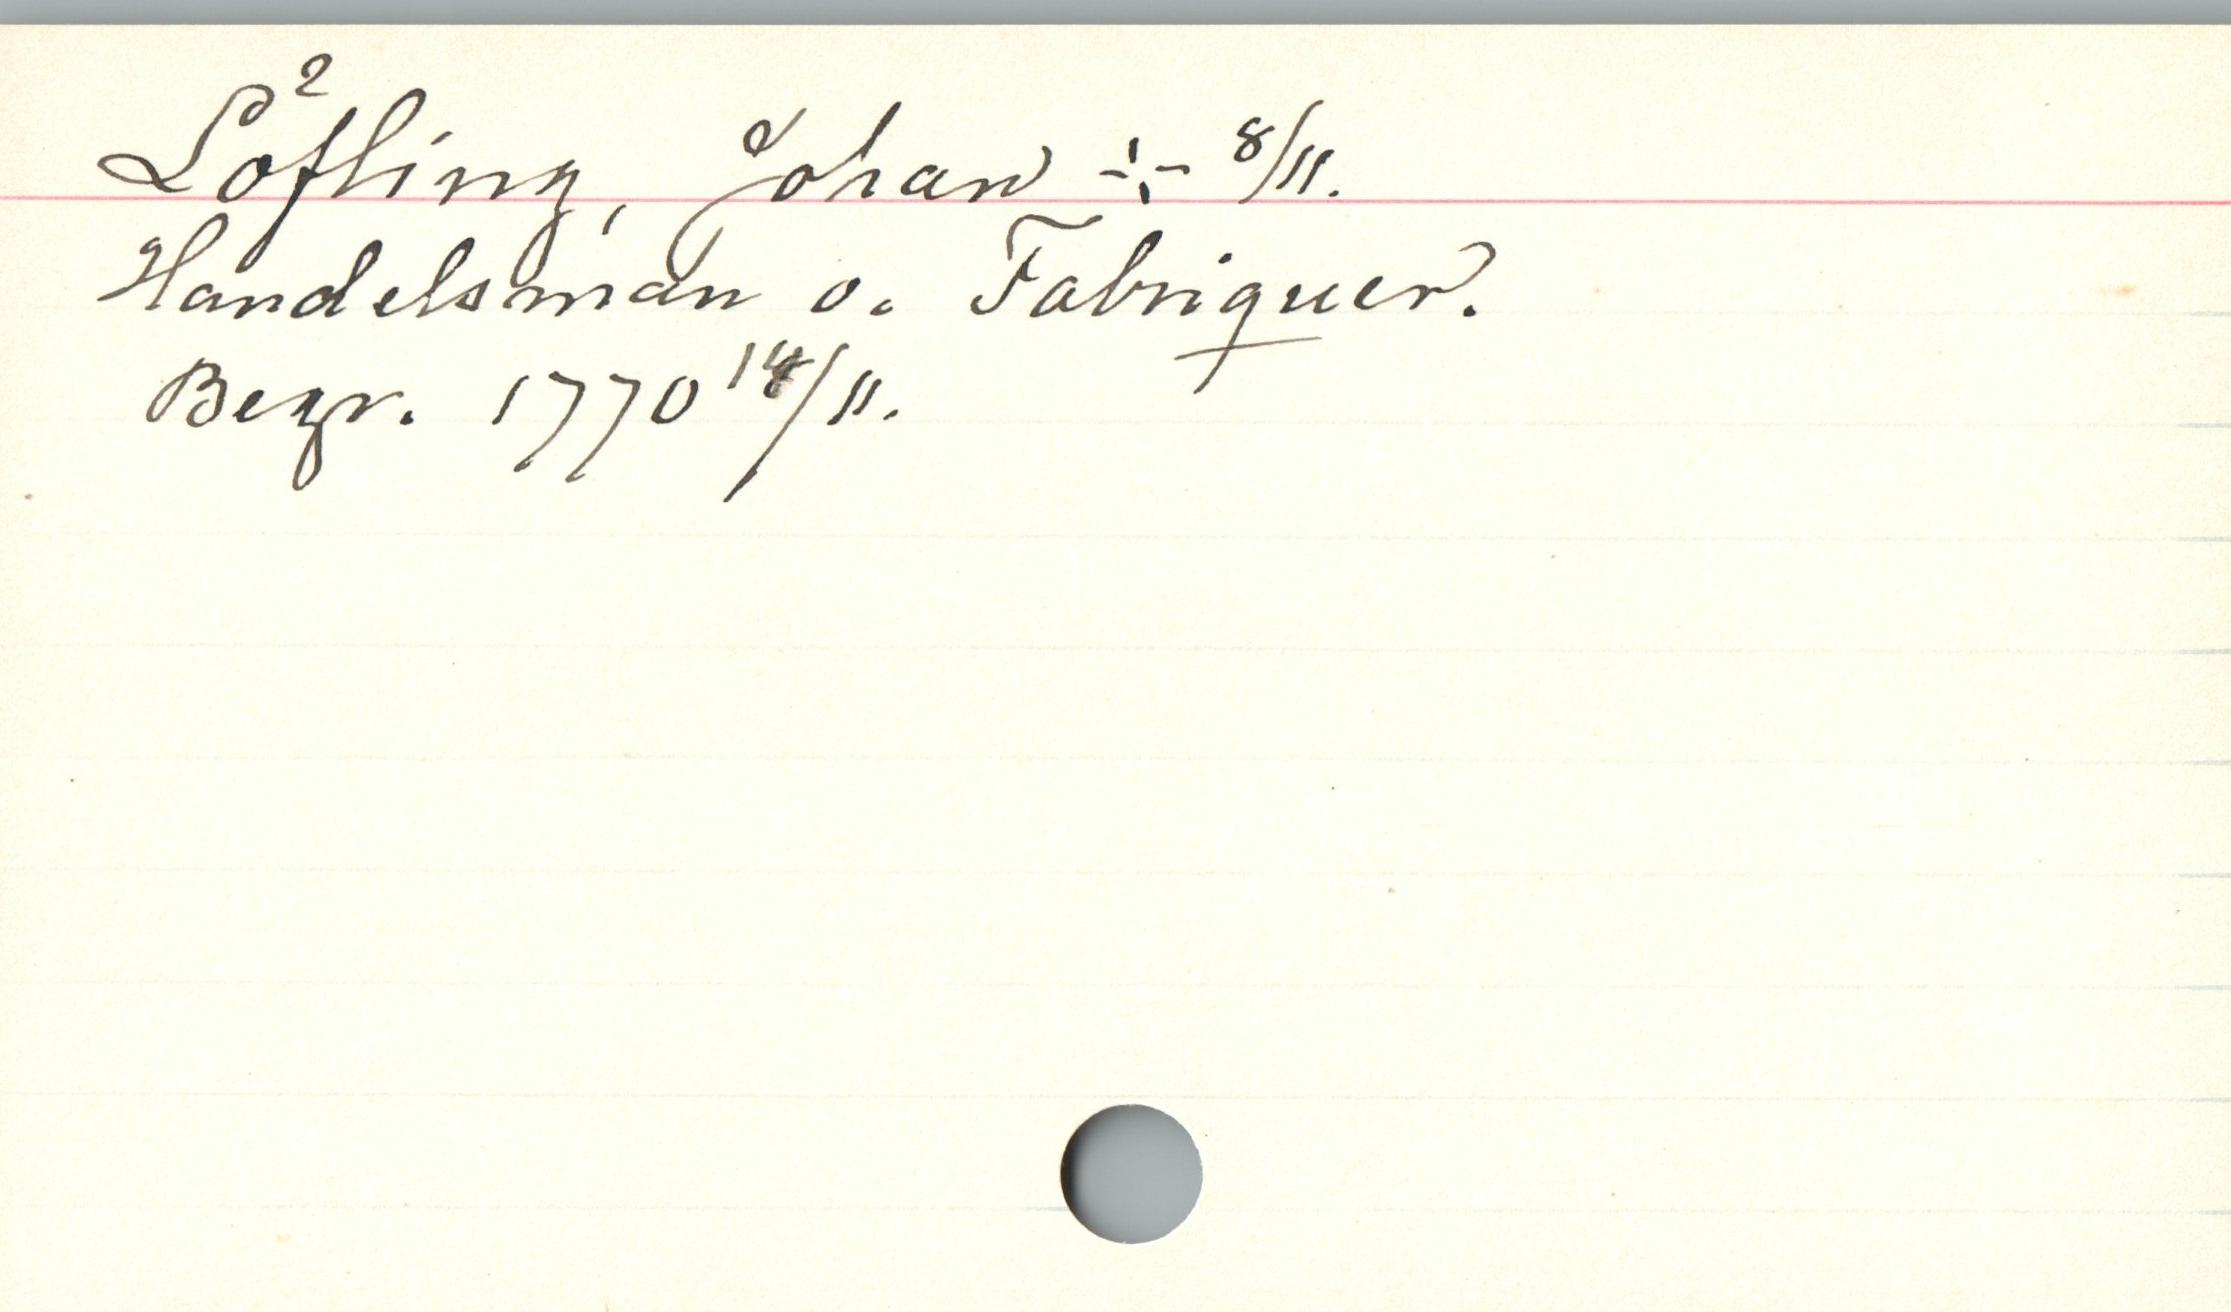 Löfling, Johan ÷ 8/11.
Handelsman o. Fabriqueur.
Begr. 1770 14/11.